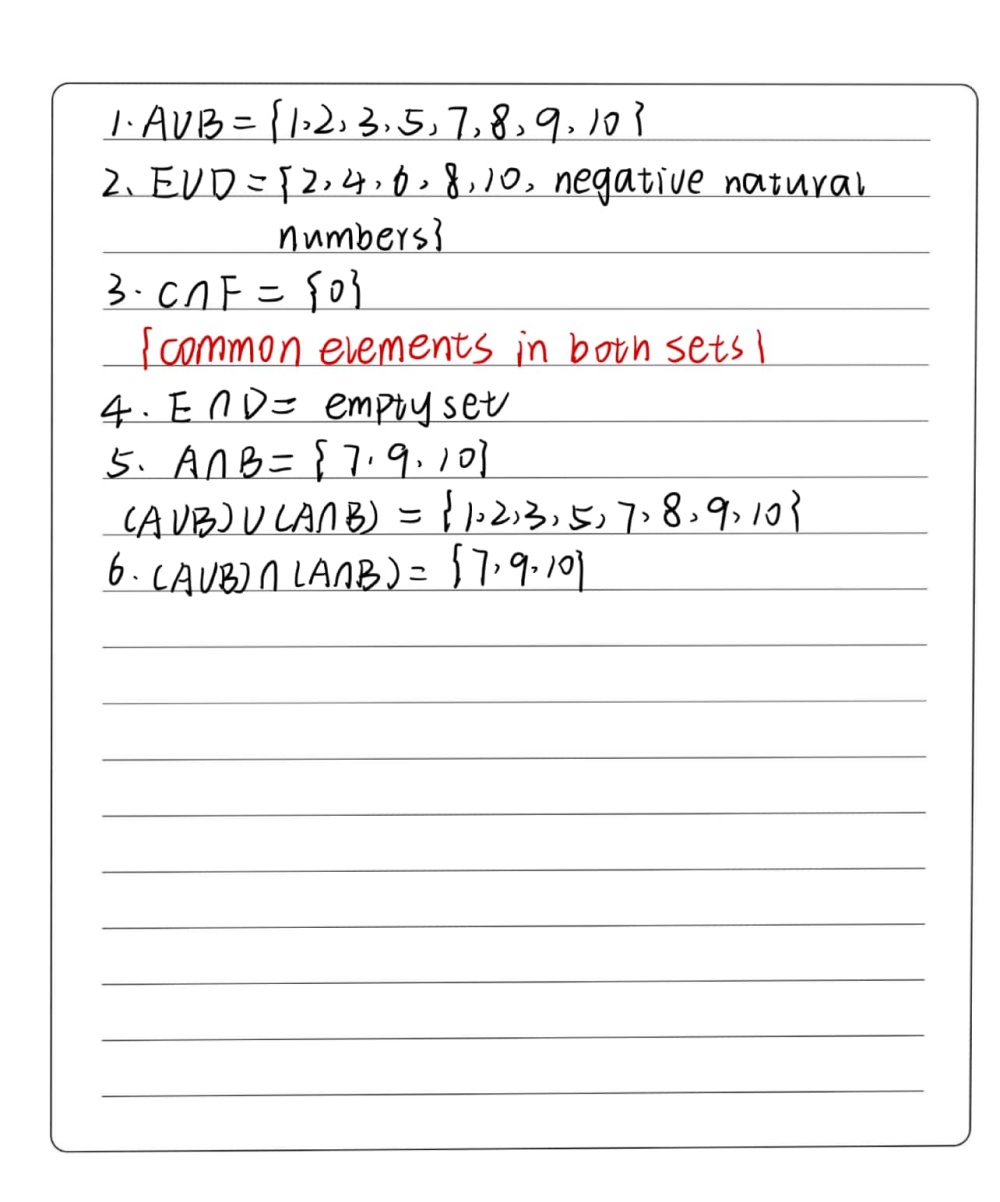 1. A∪B = {1,2,3,5,7,8,9,10}
2、E∪D = {2,4,6,8,10, negative natural
numbers}
3. C∩F = {0}
{common elements in both sets}
4. E∩D = empty set
5. A∩B = {7,9,10}
(A∪B)∪(A∩B) = {1,2,3,5,7,8,9,10}
6. (A∪B)∩(A∩B) = {7,9,10}